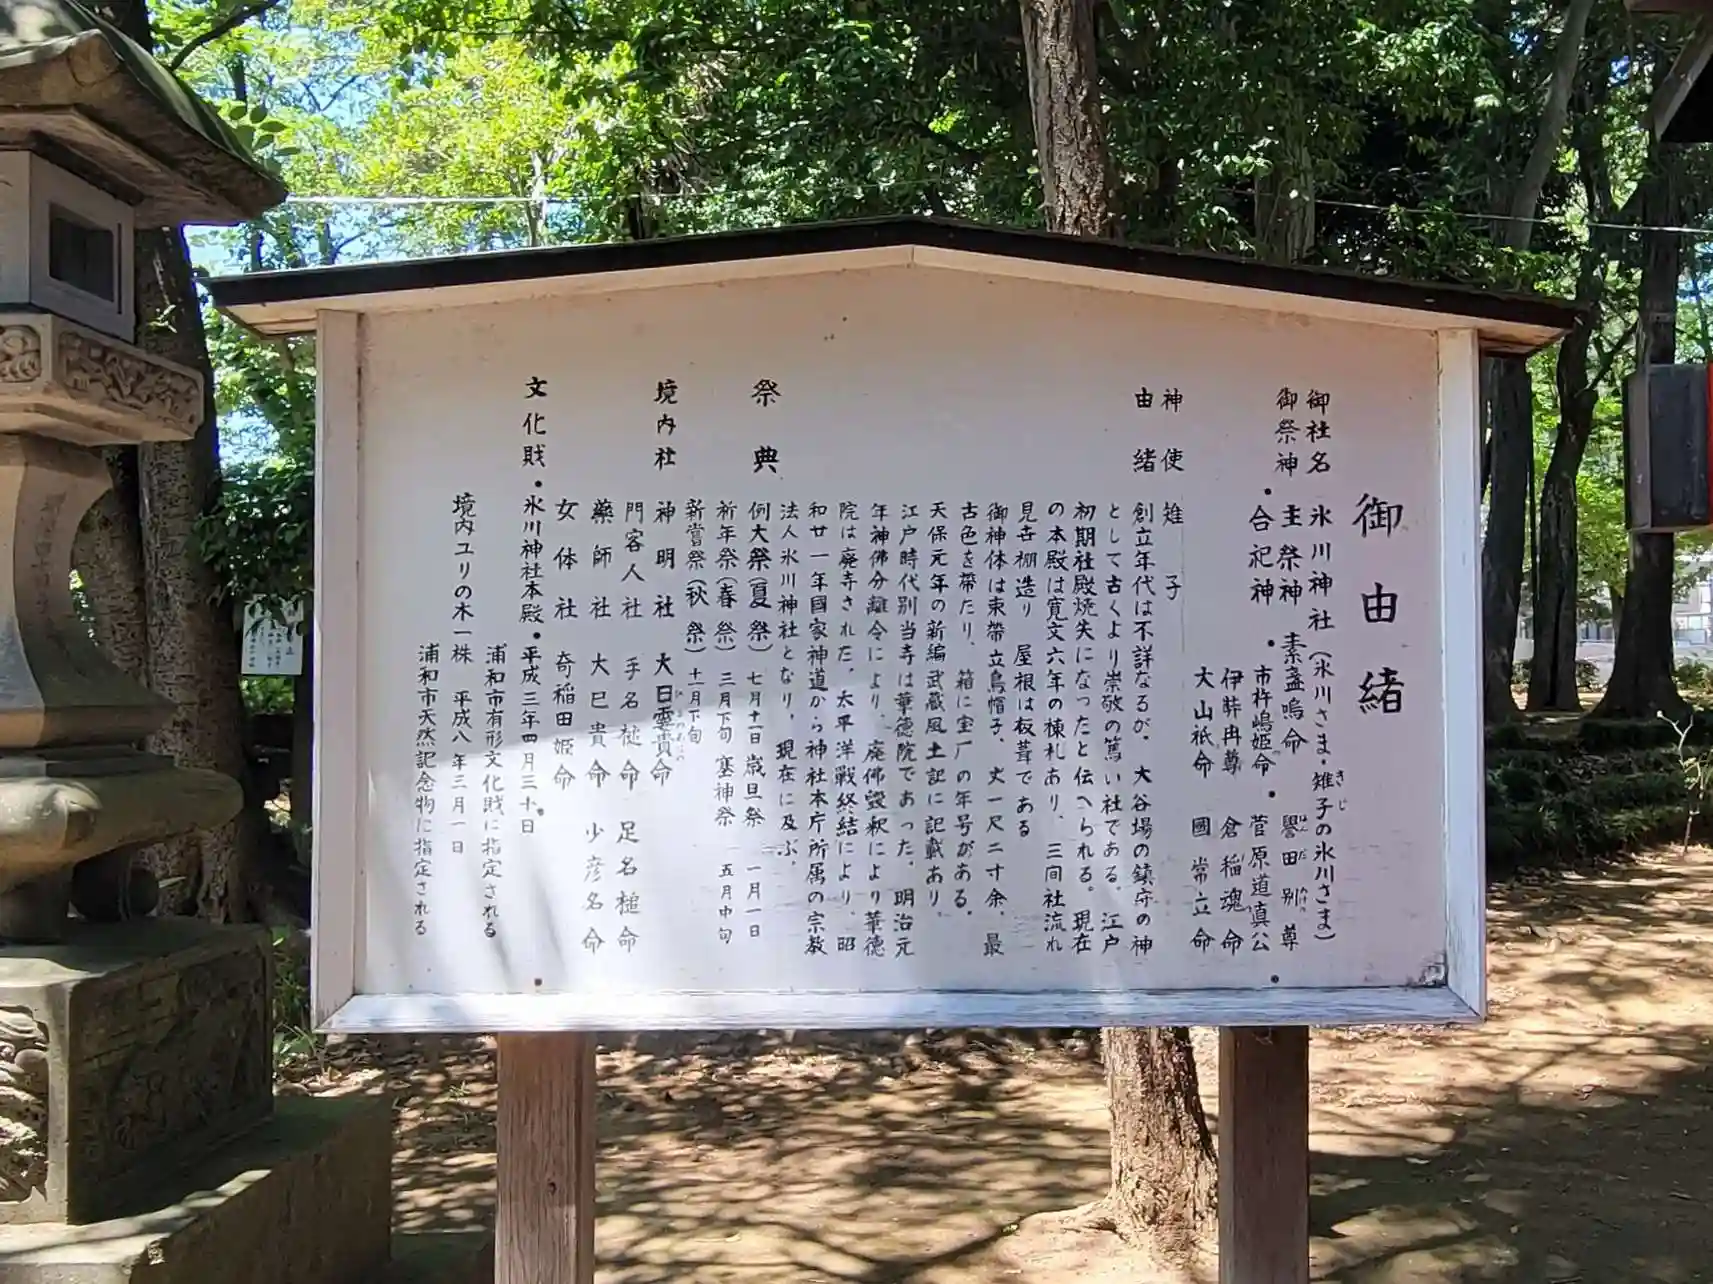 御由緒
御社名 氷川神社(氷川さま・雉子の氷川さま)
御祭神・主祭神 素盞嗚命 譽田別尊
・合祀神・市杵嶋姫命・菅原道真公
伊弉冉尊 倉稲魂命
大山祇命 國常立命
神使 雉子
由緒 創立年代は不詳なるが、大谷場の鎮守の神
として古くより崇敬の篤い社である。江戸
初期社殿焼失になったと伝へられる。現在
の本殿は寛文六年の棟札あり、三间社流れ
見世棚造り 屋根は板葺である
御神体は束帶立烏帽子、丈一尺二寸余、最
古色を帶たり、箱に宝厂の年号がある。
天保元年の新編武蔵風土記に記載あり、
江戸時代別当寺は華德院であった、明治元
年神佛分離令により、廃佛毀釈により華德
院は廃寺された、太平洋戦終結により、昭
和廿一年國家神道から神社本庁所属の宗教
法人氷川神社となり、現在に及ぶ。
祭典 例大祭(夏祭)七月十一日 歳旦祭 一月一日
祈年祭(春祭)三月下旬 塞神祭 五月中旬
新嘗祭(秋祭)十一月下旬
境内社 神明社 大日孁貴命
門客人社 手名槌命 足名槌命
藥師社 大巳貴命 少彦名命
女体社 奇稲田姫命
文化財・氷川神社本殿・平成三年四月三十日
浦和市有形文化財に指定される
境内ユリの木一株 平成八年三月一日
浦和市天然記念物に指定される